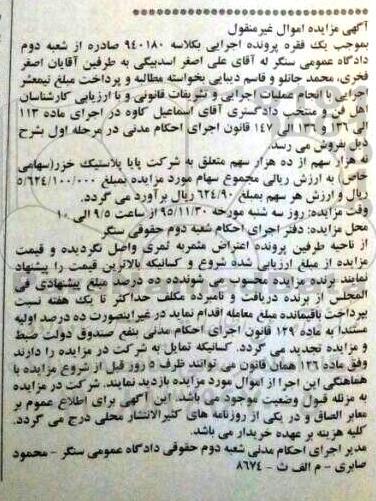 آگهی مزایده اموال غیرمنقول
بموجب یک فقره پرونده اجرایی بکلاسه ۹۴۰۱۸۰ صادره از شعبه دوم
دادگاه عمومی سنگر له آقای علی اصغر اسدبیگی به طرفین آقایان اصغر
فخری، محمد جانلو و قاسم دیبایی بخواسته مطالبه و پرداخت مبلغ نیمعشر
اجرایی با انجام عملیات اجرایی و تشریفات قانونی و با ارزیابی کارشناسان
اهل فن و منتخب دادگستری آقای اسماعیل کاوه در اجرای ماده ۱۱۳
الی ۱۲۶ و ۱۳۷ الی ۱۴۷ قانون اجرای احکام مدنی در مرحله اول بشرح
ذیل بفروش می رسد.
نه هزار سهم از ده هزار سهم متعلق به شرکت پایا پلاستیک خزر(سهامی
خاص) به ارزش ریالی مجموع سهام مورد مزایده بمبلغ ۵/۶۲۴/۱۰۰/۰۰۰
ریال و ارزش هر سهم بمبلغ ۶۲۴/۹۰۰ ریال برآورد می گردد.
وقت مزایده: روز سه شنبه مورخه ۹۵/۱۱/۳۰ از ساعت ۹/۵ الی ۱۰
محل مزایده: دفتر اجرای احکام شعبه دوم حقوقی سنگر
از ناحیه طرفین پرونده اعتراض مثمربه ثمری واصل نگردیده و قیمت
مزایده از مبلغ ارزیابی شده شروع و کسانیکه بالاترین قیمت را پیشنهاد
نمایند برنده مزایده محسوب می شوندده ده درصد مبلغ پیشنهادی فی
المجلس از برنده دریافت و نامبرده مکلف حداکثر تا یک هفته نسبت
بپرداخت باقیمانده مبلغ معامله اقدام نماید در غیراینصورت ده درصد اولیه
مستندا به ماده ۱۲۹ قانون اجرای احکام مدنی بنفع صندوق دولت ضبط
و مزایده تجدید می گردد. کسانیکه تمایل به شرکت در مزایده را دارند
وفق ماده ۱۲۶ همان قانون می توانند ظرف ۵ روز قبل از شروع مزایده با
هماهنگی این اجرا از اموال مورد مزایده بازدید نمایند. شرکت در مزایده
به مزله قبول وضعیت موجود می باشد. این آگهی برای اطلاع عموم بر
معابر الصاق و در یکی از روزنامه های کثیرالانتشار محلی درج می گردد.
کلیه هزینه بر عهده خریدار می باشد.
مدیر اجرای احکام مدنی شعبه دوم حقوقی دادگاه عمومی سنگر - محمود
صابری - م الف ث - ۸۶۷۴